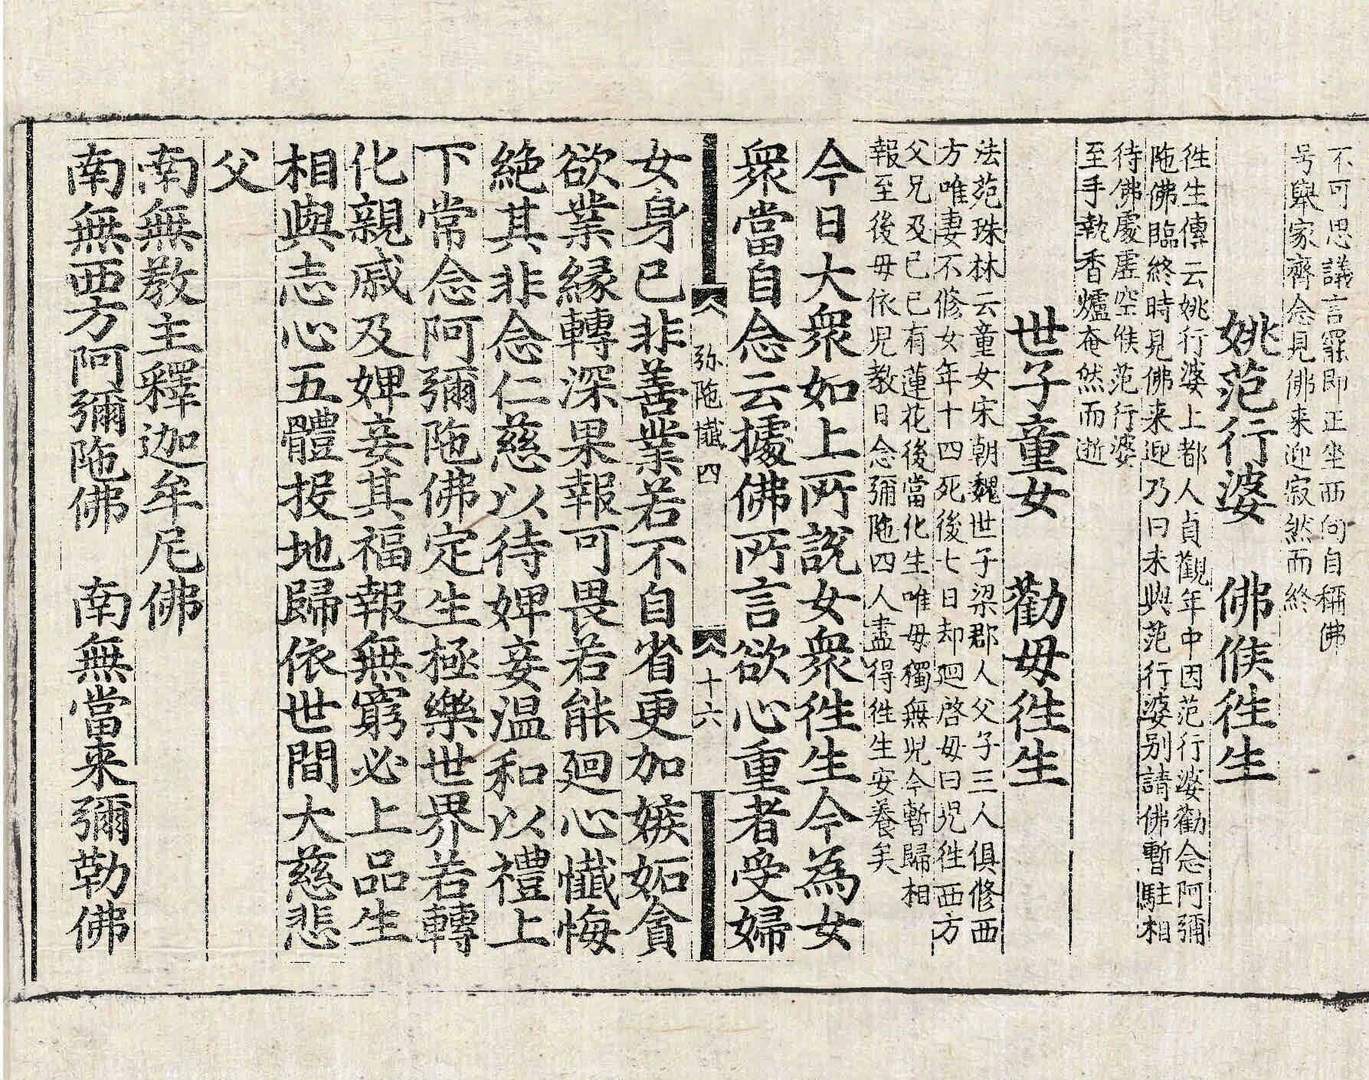 不可思議言罷即正坐西向自稱佛
号舉家齊念見佛来迎寂然而終
姚范行婆　佛候徃生
徃生傳云姚行婆上都人貞觀年中因范行婆勸念阿彌
陁佛臨終時見佛来迎乃曰未與范行婆别請佛暫駐相
待佛處虛空候范行婆
至手執香爐奄然而逝
世子童女　勸母徃生
法苑珠林云童女宋朝魏世子梁郡人父子三人俱修西
方唯妻不修女年十四死後七日却廻啓母曰児徃西方
父兄及已已有蓮花後當化生唯母獨無児今暫歸相
報至後母依児教日念彌陁四人盡得徃生安養矣
今日大衆如上所說女衆徃生今為女
衆當自念云據佛所言欲心重者受婦
弥陁懴四　十六
女身已非善業若不自省更加嫉妬貪
欲業緣轉深果報可畏若能廻心懴悔
絶其非念仁慈以待婢妾温和以禮上
下常念阿彌陁佛定生極樂世界若轉
化親戚及婢妾其福報無窮必上品生
相與志心五體投地歸依世間大慈悲
父
南無教主釋迦牟尼佛
南無西方阿彌陁佛　南無當来彌勒佛